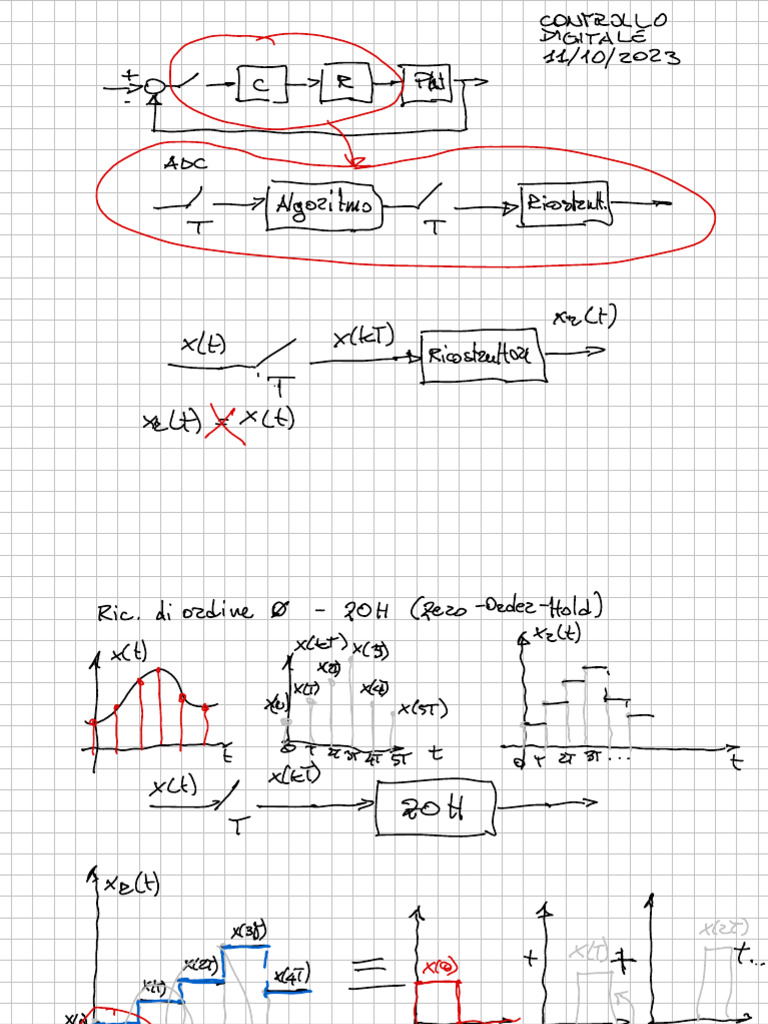 CONTROLLO
DIGITALE
11/10/2023
+
-
C
R
ADC
T
Algoritmo
T
Ricostrutt.
x(t)
T
x(kT)
Ricostruttore
xr(t)
xr(t) = x(t)
Ric. di ordine 0 - ZOH (Zero-Order-Hold)
x(t)
t
x(kT)
x(0)
x(T)
x(2T)
x(3T)
x(4T)
x(5T)
0 T 2T 3T 4T 5T
t
xr(t)
0 T 2T 3T ...
t
x(t)
T
x(kT)
ZOH
xR(t)
x(T)
x(2T)
x(3T)
x(4T)
=
x(0)
+
x(T)
+
x(2T)
t...